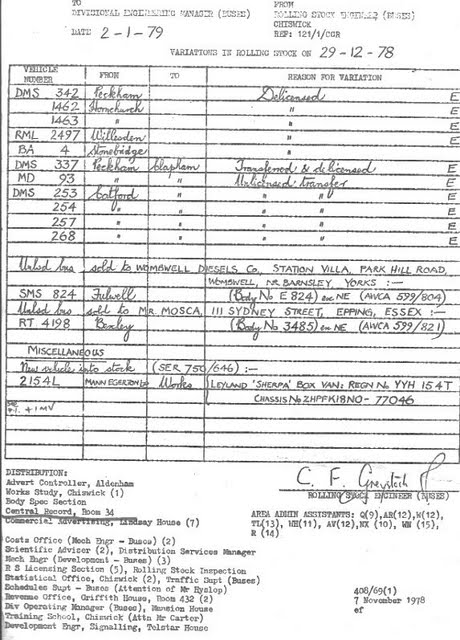 TO
DIVISIONAL ENGINEERING MANAGER (BUSES)
FROM
ROLLING STOCK ENGINEER (BUSES)
CHISWICK
REF: 121/1/CGR
DATE 2-1-79
VARIATIONS IN ROLLING STOCK ON 29-12-78
VEHICLE NUMBER FROM TO REASON FOR VARIATION
DMS 342 Peckham Delicensed E
1462 Hornchurch " E
1463 " " E
RML 2497 Willesden " E
BA 4 Stonebridge " E
DMS 337 Peckham Clapham Transferred & delicensed E
MD 93 " " Unlicensed transfer E
DMS 253 Catford " " " E
254 " " " " E
257 " " " " E
268 " " " " E
Unlsd bus sold to WOMBWELL DIESELS Co, STATION VILLA, PARK HILL ROAD,
WOMBWELL, NR BARNSLEY, YORKS :—
SMS 824 Fulwell (Body No E 824) ex NE (AWCA 599/804)
Unlsd bus sold to MR. MOSCA, 111 SYDNEY STREET, EPPING, ESSEX :—
RT 4198 Bexley (Body No 3485) ex NE (AWCA 599/821)
MISCELLANEOUS
New vehicle into stock (SER 750/646) :—
2154L MANN EGERTON Works LEYLAND 'SHERPA' BOX VAN: REGN No YYH 154T
CHASSIS No ZHPFK18NO- 77046
+1MV
DISTRIBUTION:
Advert Controller, Aldenham
Works Study, Chiswick (1)
Body Spec Section
Central Record, Room 34
Commercial Advertising, Lindsay House (7)
Costs Office (Mech Engr - Buses) (2)
Scientific Adviser (2), Distribution Services Manager
Mech Engr (Development - Buses) (3)
R S Licensing Section (5), Rolling Stock Inspection
Statistical Office, Chiswick (2), Traffic Supt (Buses)
Schedules Supt - Buses (Attention of Mr Hyslop)
Revenue Office, Griffith House, Room 432 (2)
Div Operating Manager (Buses), Mansion House
Training School, Chiswick (Attn Mr Carter)
Development Engr, Signalling, Telstar House
C. F.
ROLLING STOCK ENGINEER (BUSES)
AREA ADMIN ASSISTANTS: Q(9),AR(12),W(12),
TL(13), WH(11), AV(12), NX (10), WN (15),
R (14)
408/69(1)
7 November 1978
ef